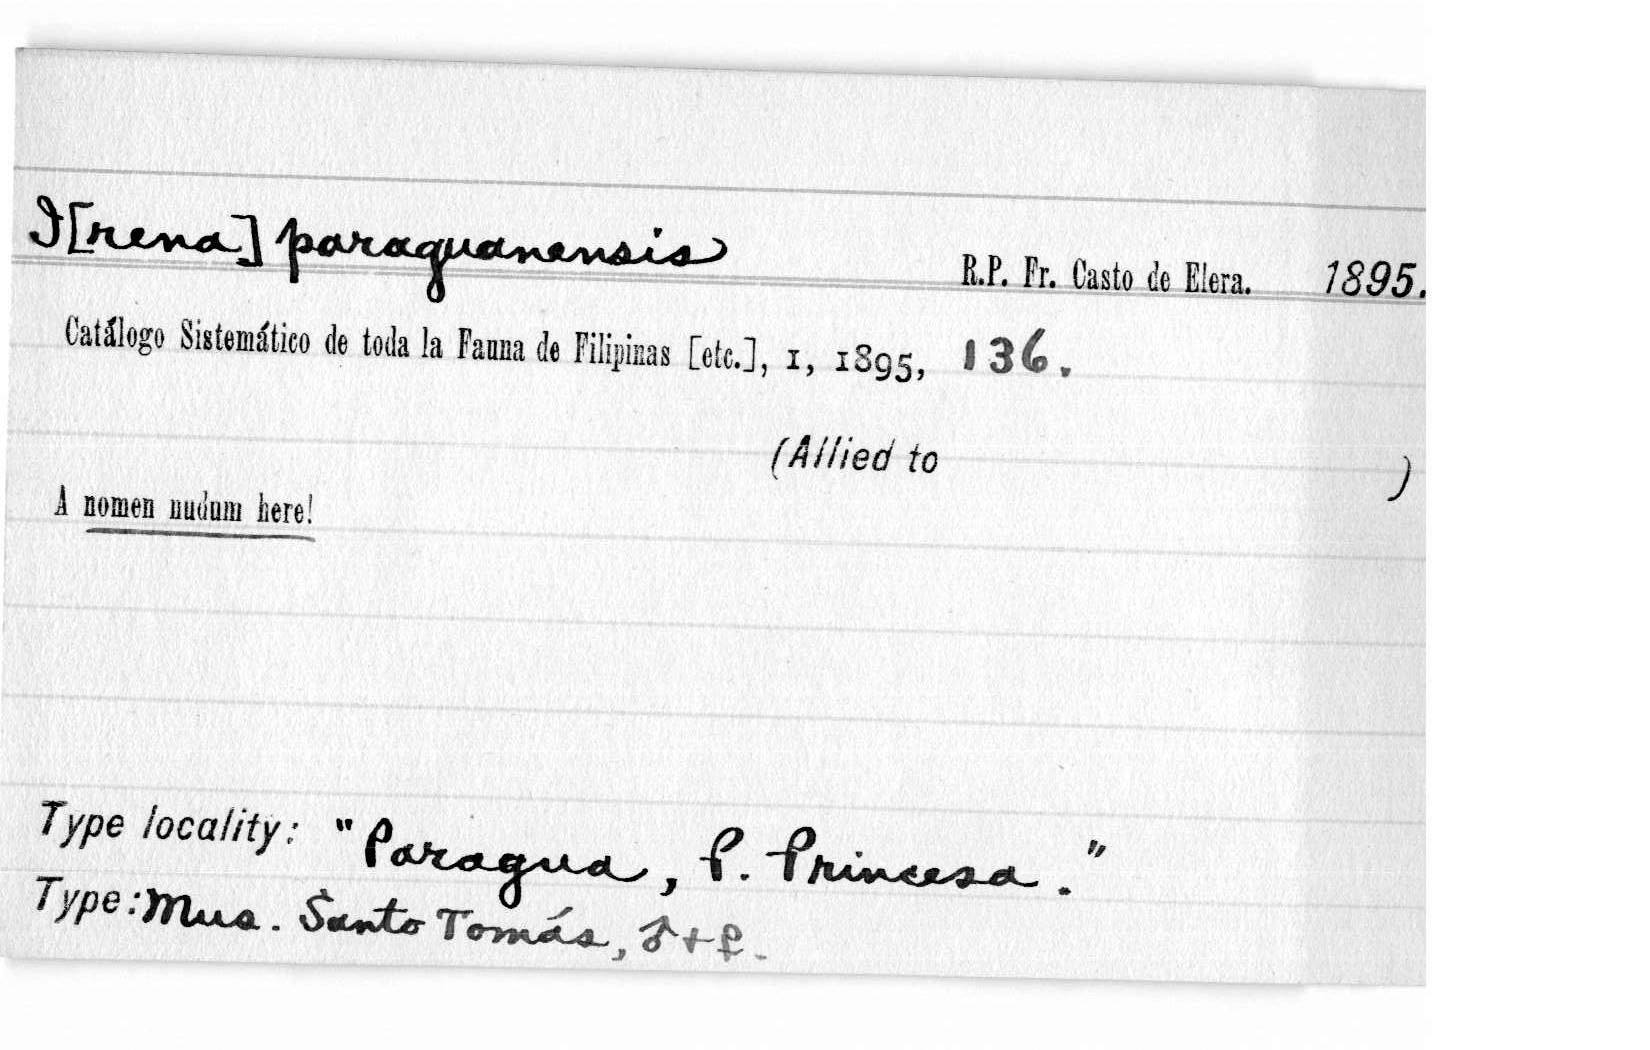 I[rena] paraguanensis R.P. Fr. Casto de Elera. 1895.
Catálogo Sistemático de toda la Fauna de Filipinas [etc.], 1, 1895, 136.
(Allied to )
A nomen nudum here!
Type locality: "Paragua, P. Princesa."
Type: Mus. Santo Tomás, ♂+♀.